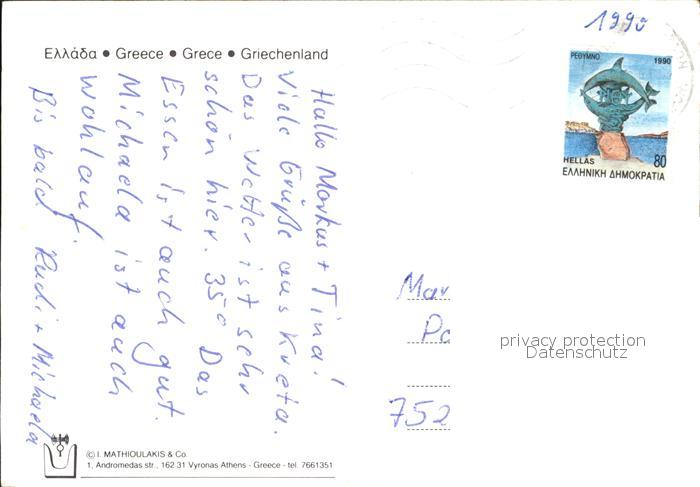 1990
Ελλάδα • Greece • Grece • Griechenland
Hallo Markus + Tina!
Viele Grüße aus Kreta.
Das Wetter ist sehr
schön hier. 35° Das
Essen ist auch gut.
Michaela ist auch
wohlauf.
Bis bald Rudi + Michaela
ΡΕΘΥΜΝΟ 1990
HELLAS 80
ΕΛΛΗΝΙΚΗ ΔΗΜΟΚΡΑΤΙΑ
Mar
Po
752
privacy protection
Datenschutz
© I. MATHIOULAKIS & Co.
1, Andromedas str., 162.31 Vyronas Athens - Greece - tel. 7661351